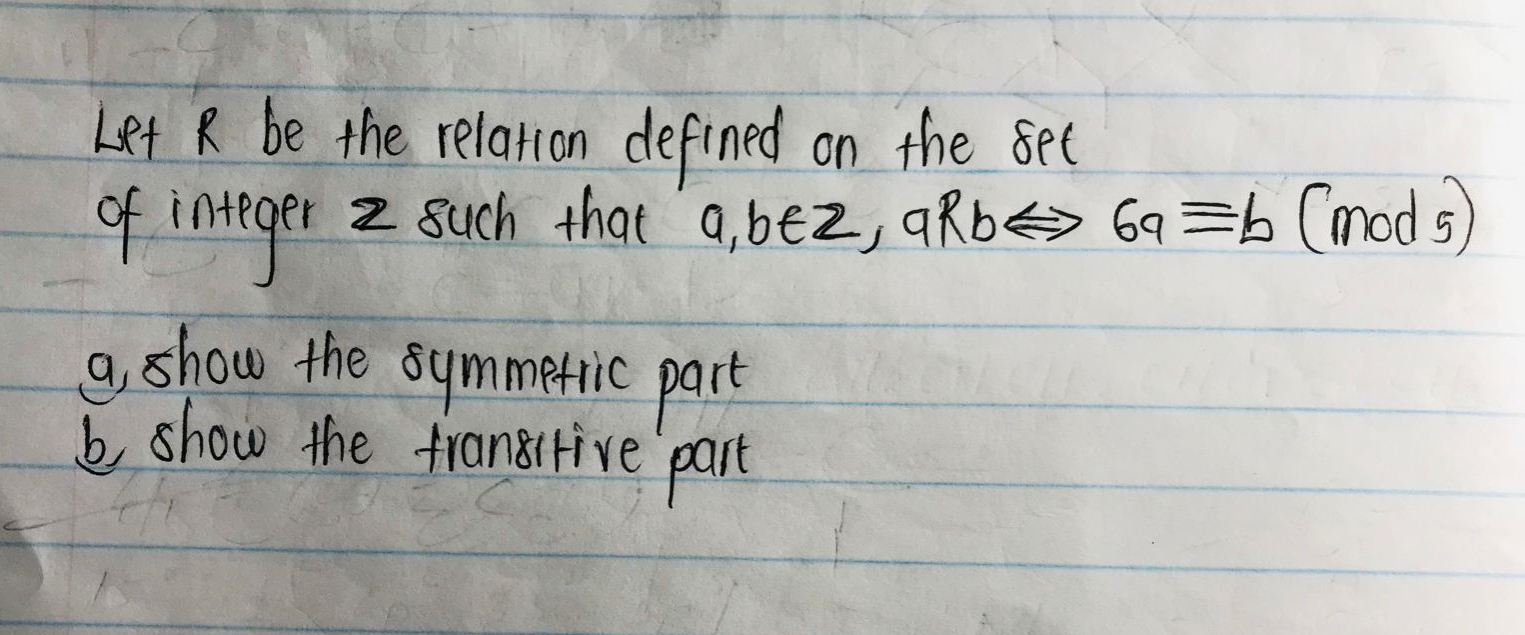 Let R be the relation defined on the set
of integer Z such that a,b∈Z, aRb⇔ 6a≡b (mod 5)
a, show the symmetric part
b, show the transitive part